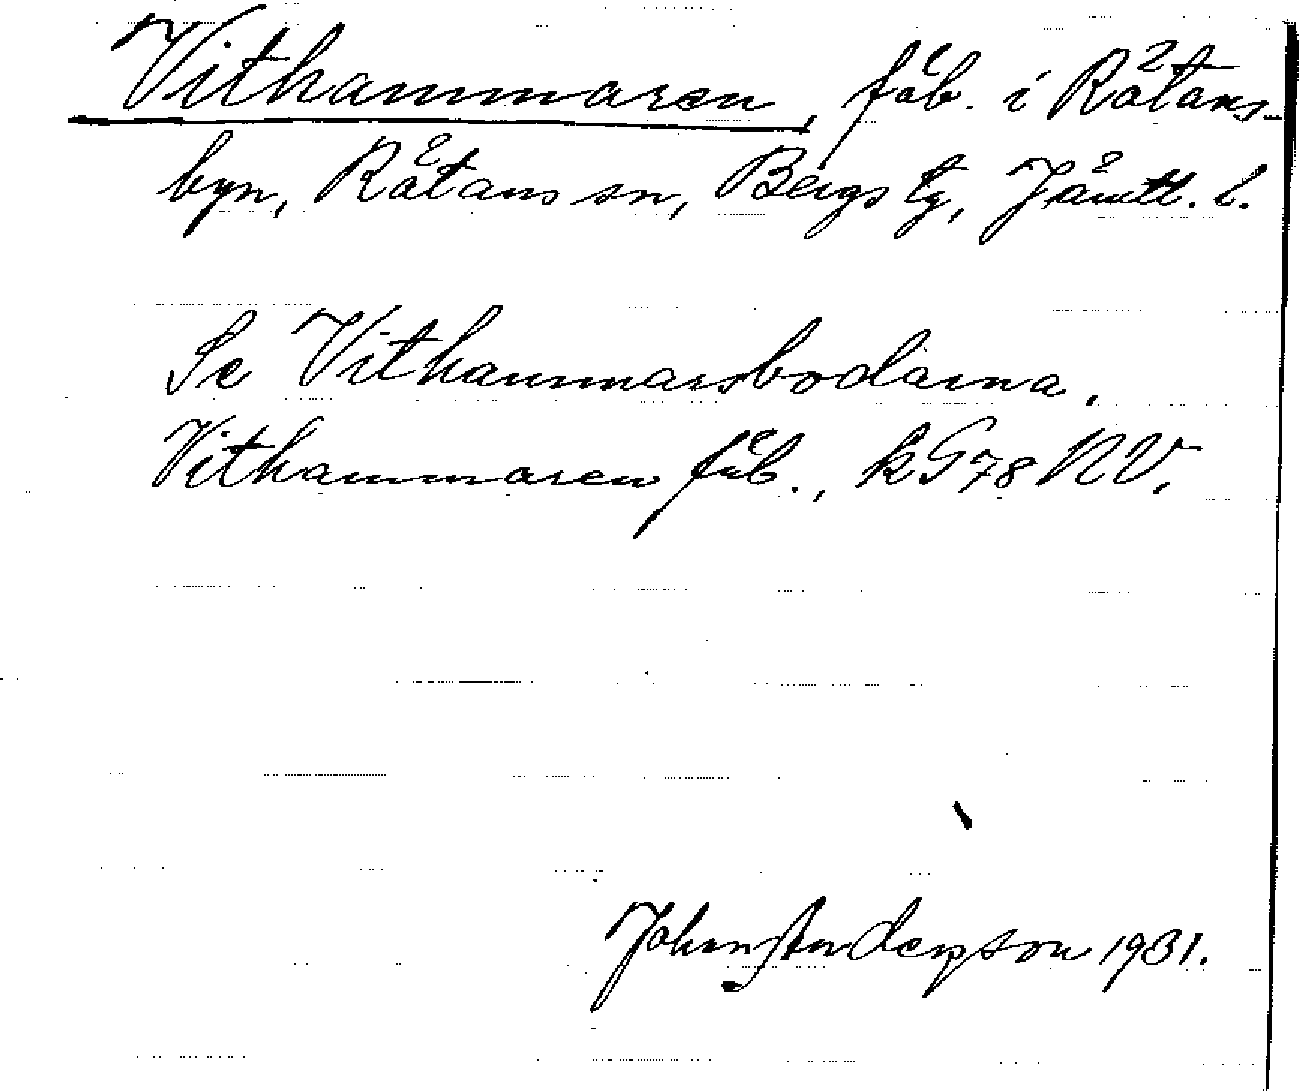 Vithammaren, fäb. i Råtans-
byn, Råtans sn, Bergs tg, Jämtl. l.
Se Vithammarsbodarna.
Vithammaren fäb., kG78 NV.
John Anderson 1931.